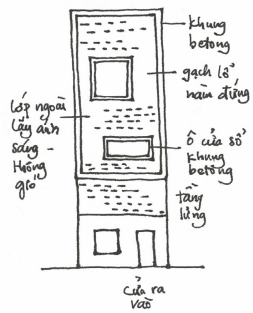 khung
betong
gạch lỗ
nằm đứng
lớp ngoài
lấy ánh
sáng -
Hướng
gió
ô cửa sổ
khung
betong
tầng
lửng
cửa ra
vào